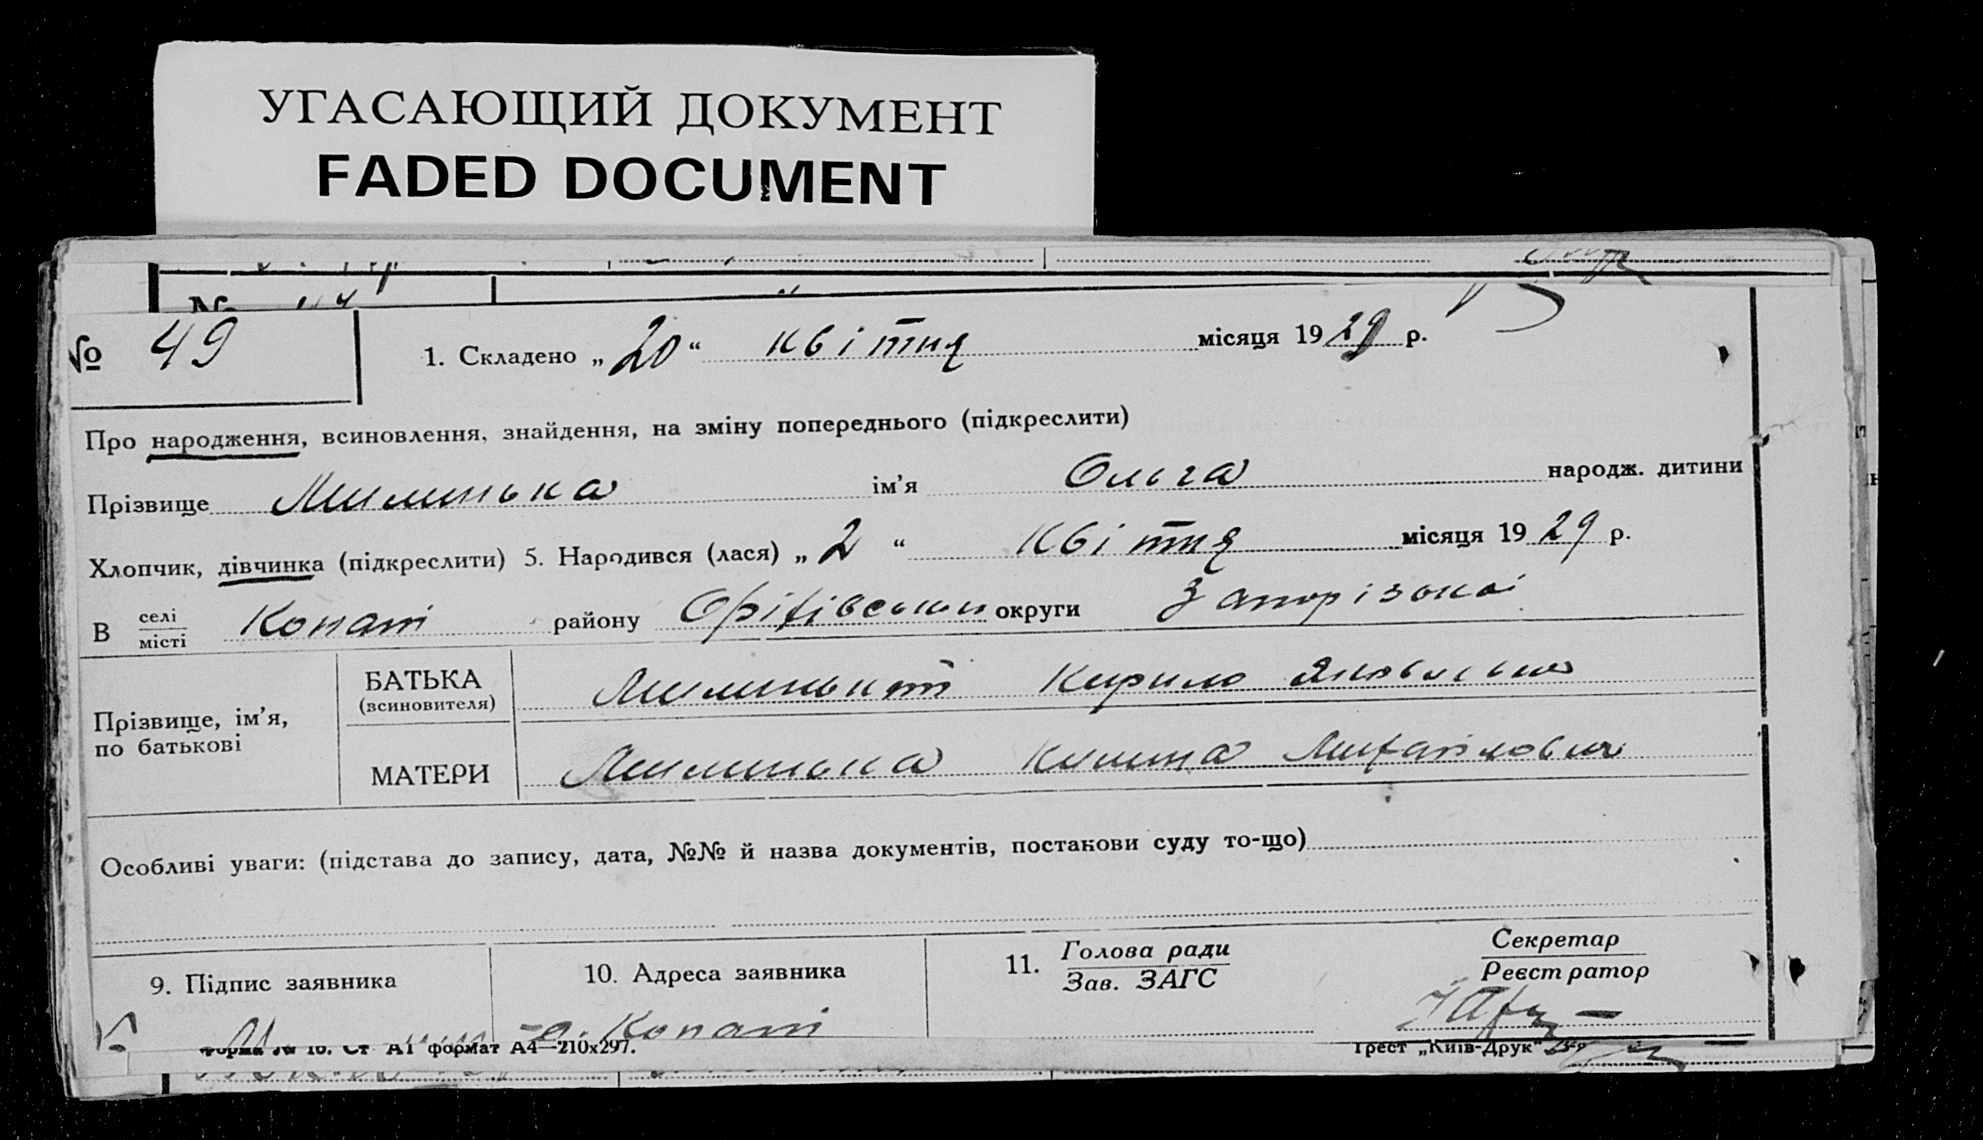 УГАСАЮЩИЙ ДОКУМЕНТ
FADED DOCUMENT
№ 49
1. Складено „20“ квітня місяця 1929 р.
Про народження, всиновлення, знайдення, на зміну попереднього (підкреслити)
Прізвище Милинька ім’я Ольга народж. дитини
Хлопчик, дівчинка (підкреслити) 5. Народився (лася) „2“ Квітня місяця 1929 р.
В селі/місті Копані району Оріхівськи округи Запорізької
Прізвище, ім’я, по батькові
БАТЬКА (всиновителя) Кирило
МАТЕРИ Милинька
Особливі уваги: (підстава до запису, дата, №№ й назва документів, постанови суду то-що)
9. Підпис заявника
10. Адреса заявника
с. Копані
11. Голова ради
Зав. ЗАГС
Секретар
Реєстратор
Форма № 16. Ст А1 формат А4—210х297.
Трест „Київ-Друк“